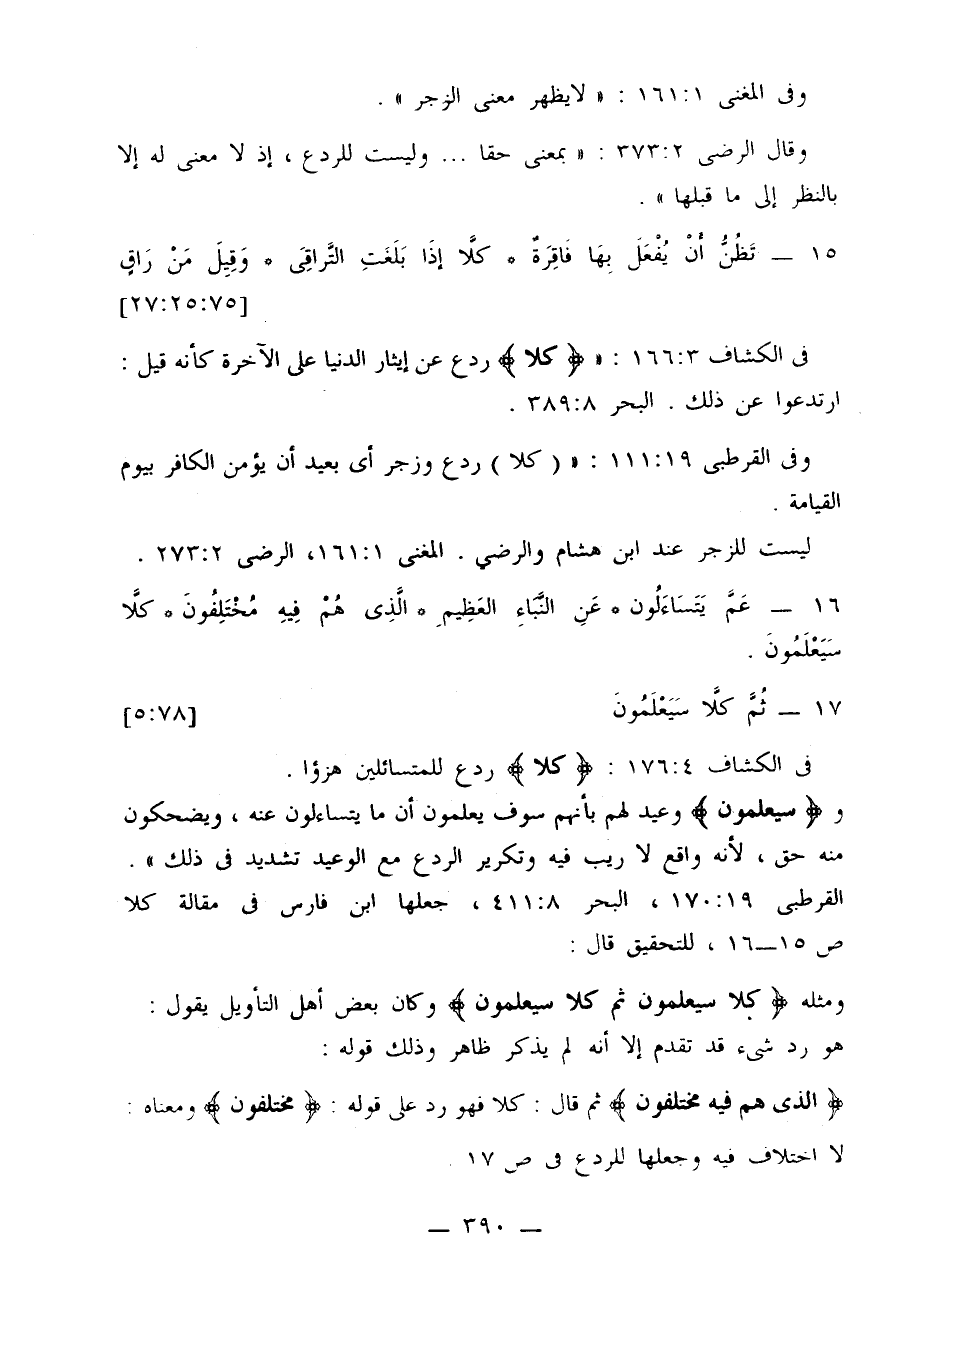 وفى المغنى ١٦١:١ : « لايظهر معنى الزجر » .
وقال الرضى ٣٧٣:٢ : « بمعنى حقا ... وليست للردع ، إذ لا معنى له إلا
بالنظر إلى ما قبلها » .
١٥ — تَظُنُّ أَنْ يُفْعَلَ بِهَا فَاقِرَةٌ * كَلَّا إِذَا بَلَغَتِ التَّرَاقِىَ * وَقِيلَ مَنْ رَاقٍ
[٢٧:٢٥:٧٥]
فى الكشاف ١٦٦:٣ : « ﴿ كلا ﴾ ردع عن إيثار الدنيا على الآخرة كأنه قيل :
ارتدعوا عن ذلك . البحر ٣٨٩:٨ .
وفى القرطبى ١١١:١٩ : « ( كلا ) ردع وزجر أى بعيد أن يؤمن الكافر بيوم
القيامة .
ليست للزجر عند ابن هشام والرضي . المغنى ١٦١:١، الرضى ٢٧٣:٢ .
١٦ — عَمَّ يَتَسَاءَلُون * عَنِ النَّبَاءِ العَظِيمِ * الَّذِى هُمْ فِيهِ مُخْتَلِفُونَ * كَلَّا
سَيَعْلَمُونَ .
١٧ — ثُمَّ كَلَّا سَيَعْلَمُونَ [٥:٧٨]
فى الكشاف ١٧٦:٤ : ﴿ كلا ﴾ ردع للمتسائلين هزؤا .
و ﴿ سيعلمون ﴾ وعيد لهم بأنهم سوف يعلمون أن ما يتساءلون عنه ، ويضحكون
منه حق ، لأنه واقع لا ريب فيه وتكرير الردع مع الوعيد تشديد فى ذلك » .
القرطبى ١٧٠:١٩ ، البحر ٤١١:٨ ، جعلها ابن فارس فى مقالة كلا
ص ١٥—١٦ ، للتحقيق قال :
ومثله ﴿ كلا سيعلمون ثم كلا سيعلمون ﴾ وكان بعض أهل التأويل يقول :
هو رد شىء قد تقدم إلا أنه لم يذكر ظاهر وذلك قوله :
﴿ الذى هم فيه مختلفون ﴾ ثم قال : كلا فهو رد على قوله : ﴿ مختلفون ﴾ ومعناه :
لا اختلاف فيه وجعلها للردع فى ص ١٧
— ٣٩٠ —